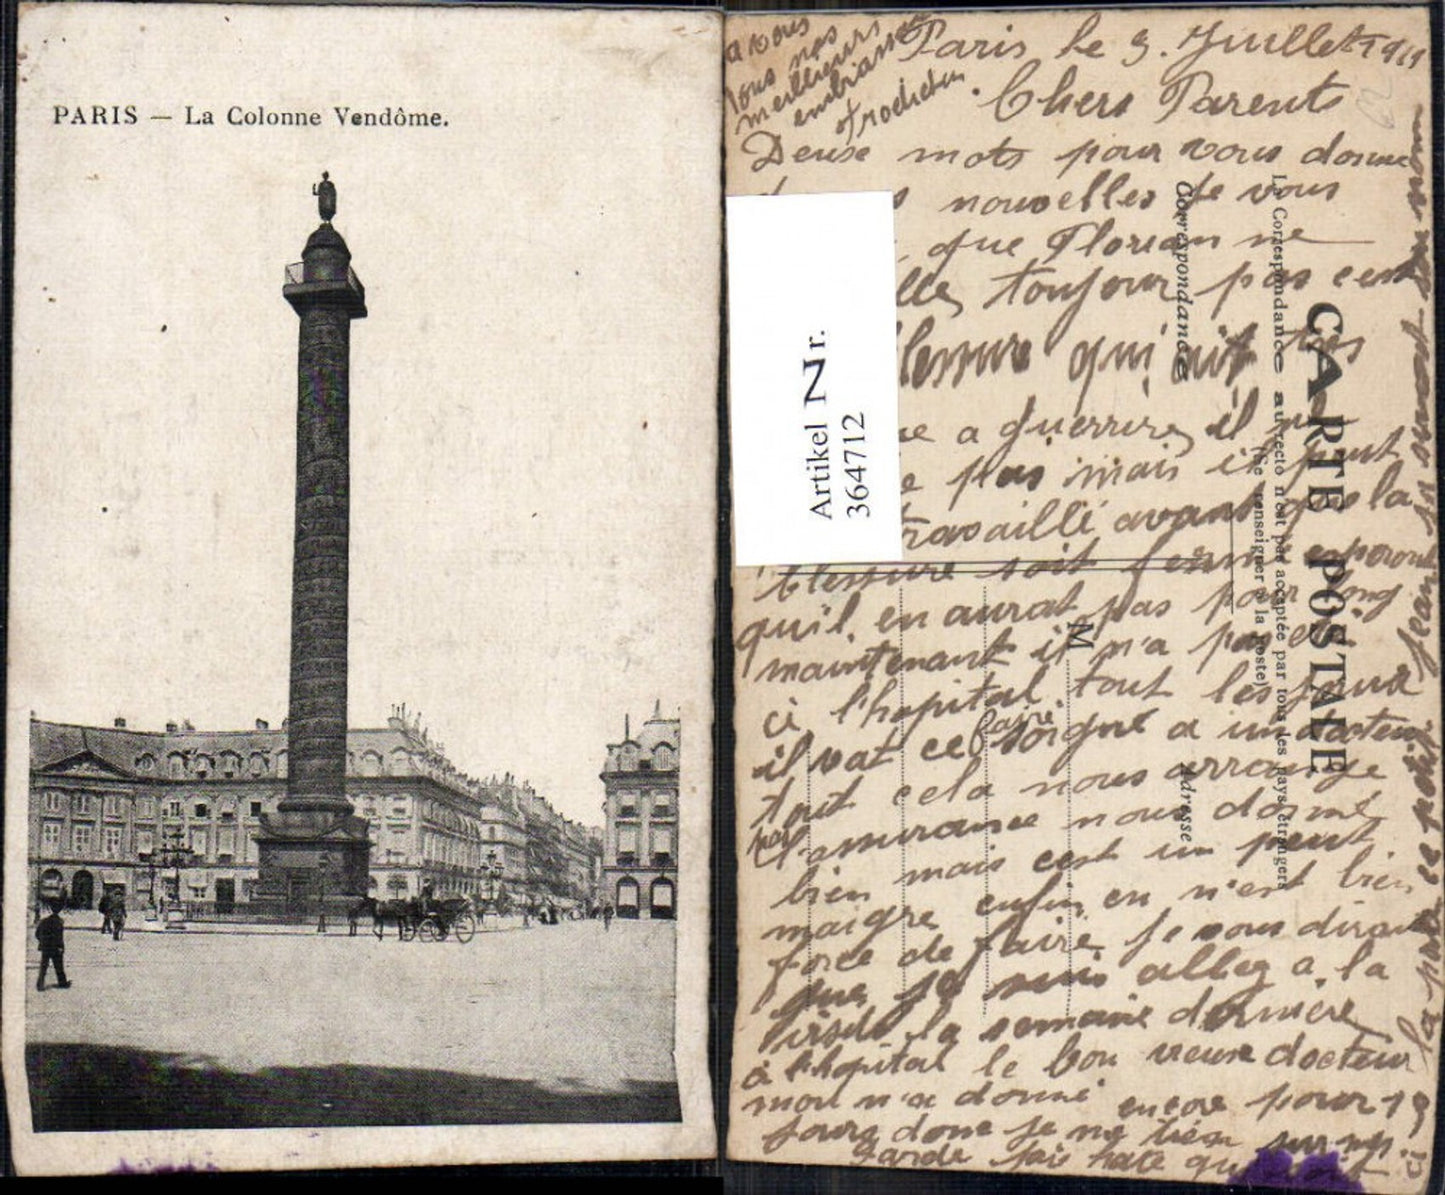 PARIS — La Colonne Vendôme.
a vous
tous nos
meilleurs
embrassé
Paris le 9. Juillet 1911
Chers Parents
Deuse mots pour vous donne
nouvelles Je vous
que Florian ne
lle toujour pas cest
lessure qui
a guerrire il
pas mais il peut
travaillé avant que la
blessure soit fermé esperont
qu'il en aurat pas pour long
maintenant il n'a pas
a l'hopital tout les jour
il vat ce faire soigné a un docteur
tout cela nous arrange
pas l'assurance nous donne
bien mais cest un peut
maigre enfin en n'est bien
force de faire Je vous dirait
que je suis allez a la
visite la semaine dernière
a l'hopital le bon vieux docteur
mon n'a donné encore pour 19
jours donc je me tiens sur mes
garde fais hate
CARTE POSTALE
La Correspondance au recto n'est pas acceptée par tous les pays étrangers
(Se renseigner à la Poste)
Correspondance
Adresse
M
Artikel Nr.
364712